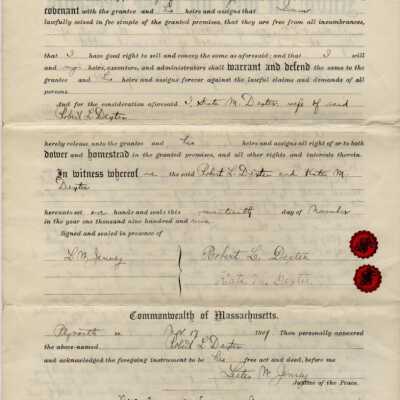 covenant with the grantee and his heirs and assigns that I am
lawfully seized in fee simple of the granted premises, that they are free from all incumbrances,
that I have good right to sell and convey the same as aforesaid; and that I will
and my heirs, executors, and administrators shall warrant and defend the same to the
grantee and his heirs and assigns forever against the lawful claims and demands of all
persons.
And for the consideration aforesaid I, Kate M. Dexter, wife of said
Robert L Dexter
hereby release unto the grantee and his heirs and assigns all right of or to both
dower and homestead in the granted premises, and all other rights and interests therein.
In witness whereof we the said Robert L Dexter and Kate M
Dexter
hereunto set our hands and seals this nineteenth day of November
in the year one thousand nine hundred and nine.
Signed and sealed in presence of
L W Jenney
Robert L. Dexter
Kate M. Dexter
Commonwealth of Massachusetts.
Plymouth ss Nov 19 1909. Then personally appeared
the above-named Robert L Dexter
and acknowledged the foregoing instrument to be his free act and deed, before me
W. Jenney
Justice of the Peace.